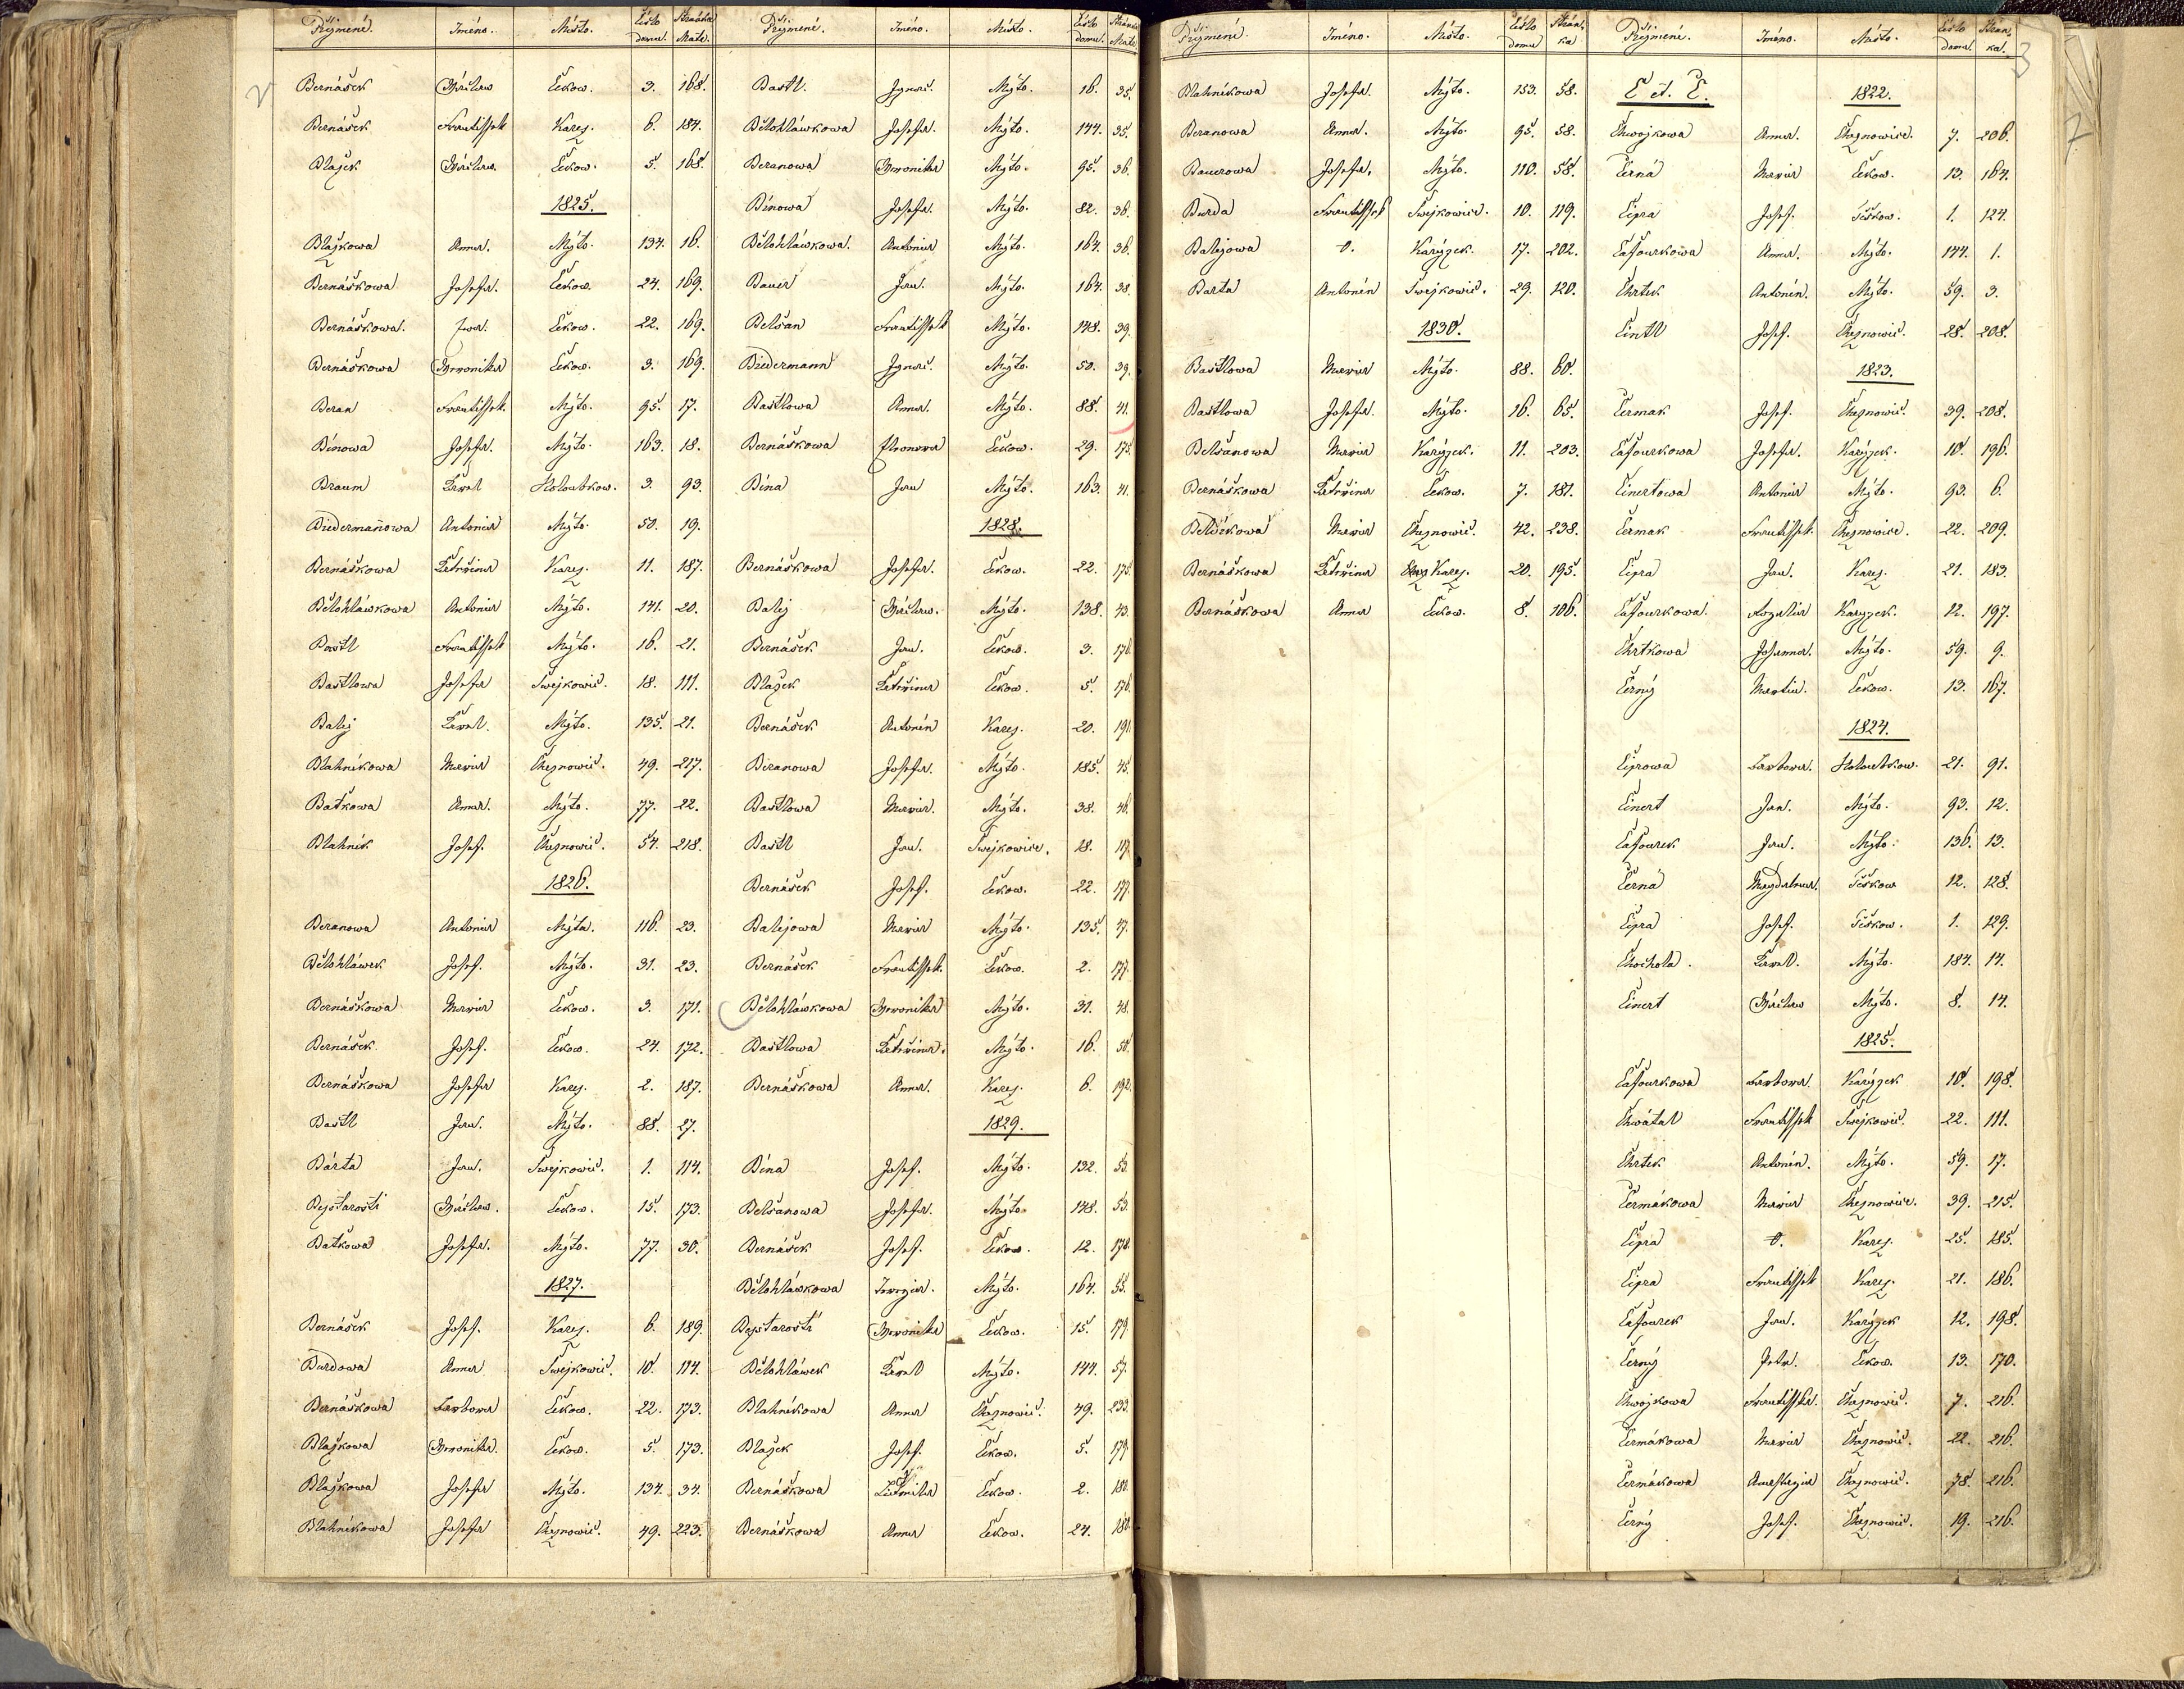 Přijmení. Jméno. Místo. Čislo domu. Stránka Matr.
Bernášek Wáclaw Čekow. 3. 168.
Bernášek Frantissek Karez. 6. 184.
Blažek Wáclaw. Čekow. 5. 168.
1825.
Blažkowa Anna. Mýto. 134. 16.
Bernáškowa Josefa. Čekow. 24. 169.
Bernáškowa. Ewa. Čekow. 22. 169.
Bernáškowa Weronika Čekow. 3. 169.
Beran Frantissek. Mýto. 95. 17.
Bínowa Josefa. Mýto. 163. 18.
Braum Karel Holoubkow. 3. 93.
Biedermanowa Antonia Mýto. 50. 19.
Bernáškowa Kateřina Karez. 11. 187.
Bělohláwkowa Antonia Mýto. 141. 20.
Bastl Frantissek Mýto. 16. 21.
Bastlowa Josefa Swejkowic. 18. 111.
Balej Karel. Mýto. 135. 21.
Blahníkowa Maria Cheznowic. 49. 217.
Baťkowa Anna. Mýto. 77. 22.
Blahník Josef. Cheznowic. 54. 218.
1826.
Beranowa Antonia Mýta. 116. 23.
Bělohláwek Josef. Mýto. 31. 23.
Bernáškowa Maria Čekow. 3. 171.
Bernášek Josef. Čekow. 24. 172.
Bernáškowa Josefa Karez. 2. 187.
Bastl Jan. Mýto. 88. 27.
Bárta Jan. Swejkowic. 1. 114.
Bezstarosti Wáclaw. Čekow. 15. 173.
Baťkowa Josefa. Mýto. 77. 30.
1827.
Bernášek Josef. Karez. 6. 189.
Burdowa Anna Swejkowic. 10. 114.
Bernáškowa Barbora Čekow. 22. 173.
Blažkowa Weronika. Čekow. 5. 173.
Blažkowa Josefa Mýto. 134. 34.
Blahníkowa Josefa Cheznowic. 49. 223.
Přijmení. Jméno. Místo. Čislo domu. Stránka Matr.
Bastl. Ignac. Mýto. 16. 35.
Bělohláwkowa Josefa. Mýto. 144. 35.
Beranowa Weronika Mýto. 95. 36.
Bínowa Josefa. Mýto. 82. 36.
Bělohláwkowa. Antonia Mýto. 164. 36.
Bauer Jan. Mýto. 164. 38.
Belšan Frantissek Mýto. 148. 39.
Biedermann Ignac. Mýto. 50. 39.
Bastlowa Anna. Mýto. 88. 41.
Bernáškowa Eleonora Čekow. 29. 175.
Bína Jan Mýto. 163. 41.
1828.
Bernáškowa Josefa. Čekow. 22. 175.
Balej Wáclaw. Mýto. 138. 43.
Bernášek Jan. Čekow. 3. 176.
Blažek Kateřina Čekow. 5. 176.
Bernášek Antonín Karez. 20. 191.
Beranowa Josefa. Mýto. 185. 45.
Bastlowa Maria. Mýto. 38. 46.
Bastl Jan. Swejkowice. 18. 117.
Bernášek Josef. Čekow. 22. 177.
Balejowa Maria Mýto. 135. 47.
Bernášek Frantissek. Čekow. 2. 177.
Bělohláwkowa Weronika Mýto. 31. 48.
Bastlowa Kateřina. Mýto. 16. 50.
Bernáškowa Anna. Karez. 6. 192.
1829.
Bína Josef. Mýto. 132. 53.
Belšanowa Josefa. Mýto. 148. 53.
Bernášek Josef. Čekow. 12. 178.
Bělohláwkowa Terezia. Mýto. 164. 55.
Bezstarosti Weronika Čekow. 15. 179.
Bělohláwek Karel Mýto. 144. 57.
Blahníkowa Anna Cheznowic. 49. 233.
Blažek Josef. Čekow. 5. 179.
Bernáškowa Ludmila Čekow. 2. 180.
Bernáškowa Anna Čekow. 24. 180.
Přijmení. Jméno. Místo. Čislo domu Strán-ka
Blahníkowa Josefa. Mýto. 153. 58.
Beranowa Anna. Mýto. 95. 58.
Bauerowa Josefa. Mýto. 110. 58.
Burda Frantissek Swejkowic. 10. 119.
Balejowa 0. Karýzek. 17. 202.
Barta Antonín Swejkowic. 29. 120.
1830.
Bastlowa Maria Mýto. 88. 60.
Bastlowa Josefa. Mýto. 16. 65.
Belšanowa Maria Karýzek. 11. 203.
Bernáškowa Kateřina Čekow. 7. 181.
Maria Cheznowic. 42. 238.
Bernáškowa Kateřina Karez. 20. 195.
Bernáškowa Anna Čekow. 8. 106.
Přijmení. Jméno. Místo. Čislo domu. Strán-ka.
3
C et. Č. 1822.
Chwojkowa Anna. Cheznowice. 7. 206.
Černá Maria Čekow. 13. 164.
Cipra Josef. Těškow. 1. 124.
Cafourkowa Anna. Mýto. 144. 1.
Chrtek Antonín. Mýto. 59. 3.
Cintl Josef. Cheznowic. 28. 208.
1823.
Čermak Josef. Cheznowic. 39. 208.
Cafourkowa Josefa. Karýzek. 10. 196.
Cinertowa Antonia Mýto. 93. 6.
Čermak Frantissek. Cheznowice. 22. 209.
Cipra Jan. Karez. 21. 183.
Cafourkowa. Rozalia Karyzek. 12. 197.
Chrtkowa Johanna. Mýto. 59. 9.
Černý Martin. Čekow. 13. 167.
1824.
Ciprowa Barbora. Holoubkow. 21. 91.
Cinert Jan. Mýto. 93. 12.
Cafourek Jan. Mýto. 136. 13.
Černá Magdalena. Těškow 12. 128.
Cipra Josef. Těškow. 1. 129.
Chochola. Karel. Mýto. 184. 14.
Cinert Wáclaw Mýto. 8. 14.
1825.
Cafourkowa Barbora. Karýzek 10. 198.
Chwátal Frantissek Swejkowic. 22. 111.
Chrtek Antonín. Mýto. 59. 17.
Čermákowa Maria Cheznowice. 39. 215.
Cipra 0. Karez. 25. 185.
Cipra Frantissek Karez. 21. 186.
Cafourek Jan. Karýzek 12. 198.
Černý Petr. Čekow. 13. 170.
Chwojkowa Frantisska. Cheznowic. 7. 216.
Čermákowa Maria Cheznowic. 22. 216.
Čermákowa Anastazia Cheznowic. 78. 216.
Černý Josef. Cheznowic. 19. 216.